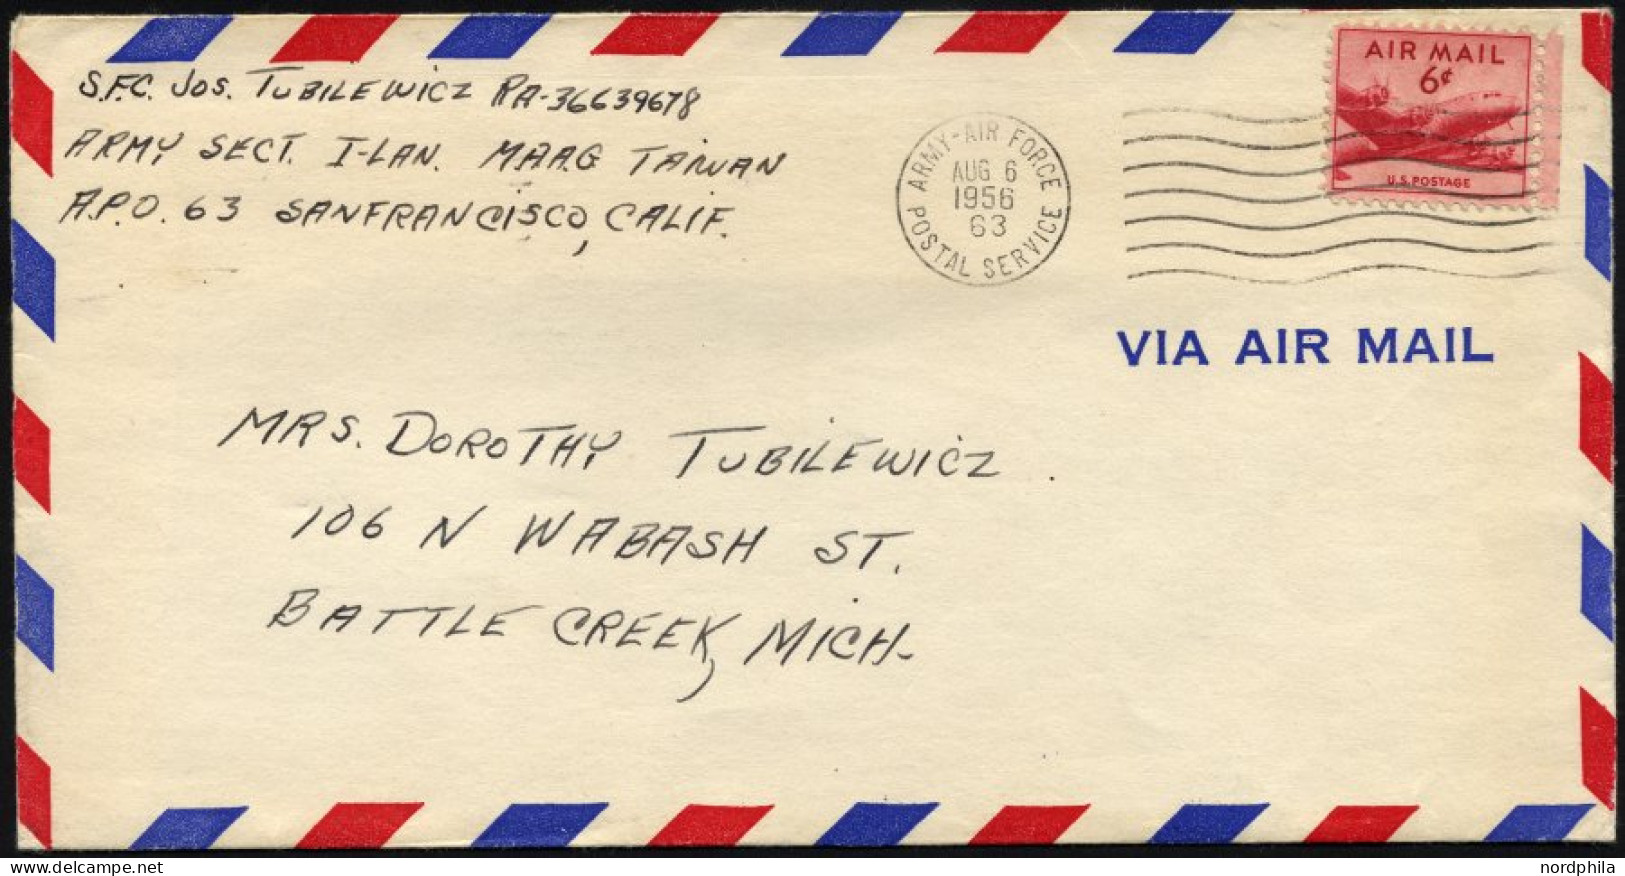 S.F.C. JOS. TUBILEWICZ RA-36639678
ARMY SECT. I-LAN. MAAG TAIWAN
A.P.O. 63 SANFRANCISCO, CALIF.
ARMY-AIR FORCE
AUG 6
1956
63
POSTAL SERVICE
AIR MAIL
6¢
U.S. POSTAGE
VIA AIR MAIL
MRS. DOROTHY TUBILEWICZ
106 N WABASH ST.
BATTLE CREEK, MICH.
nordphila